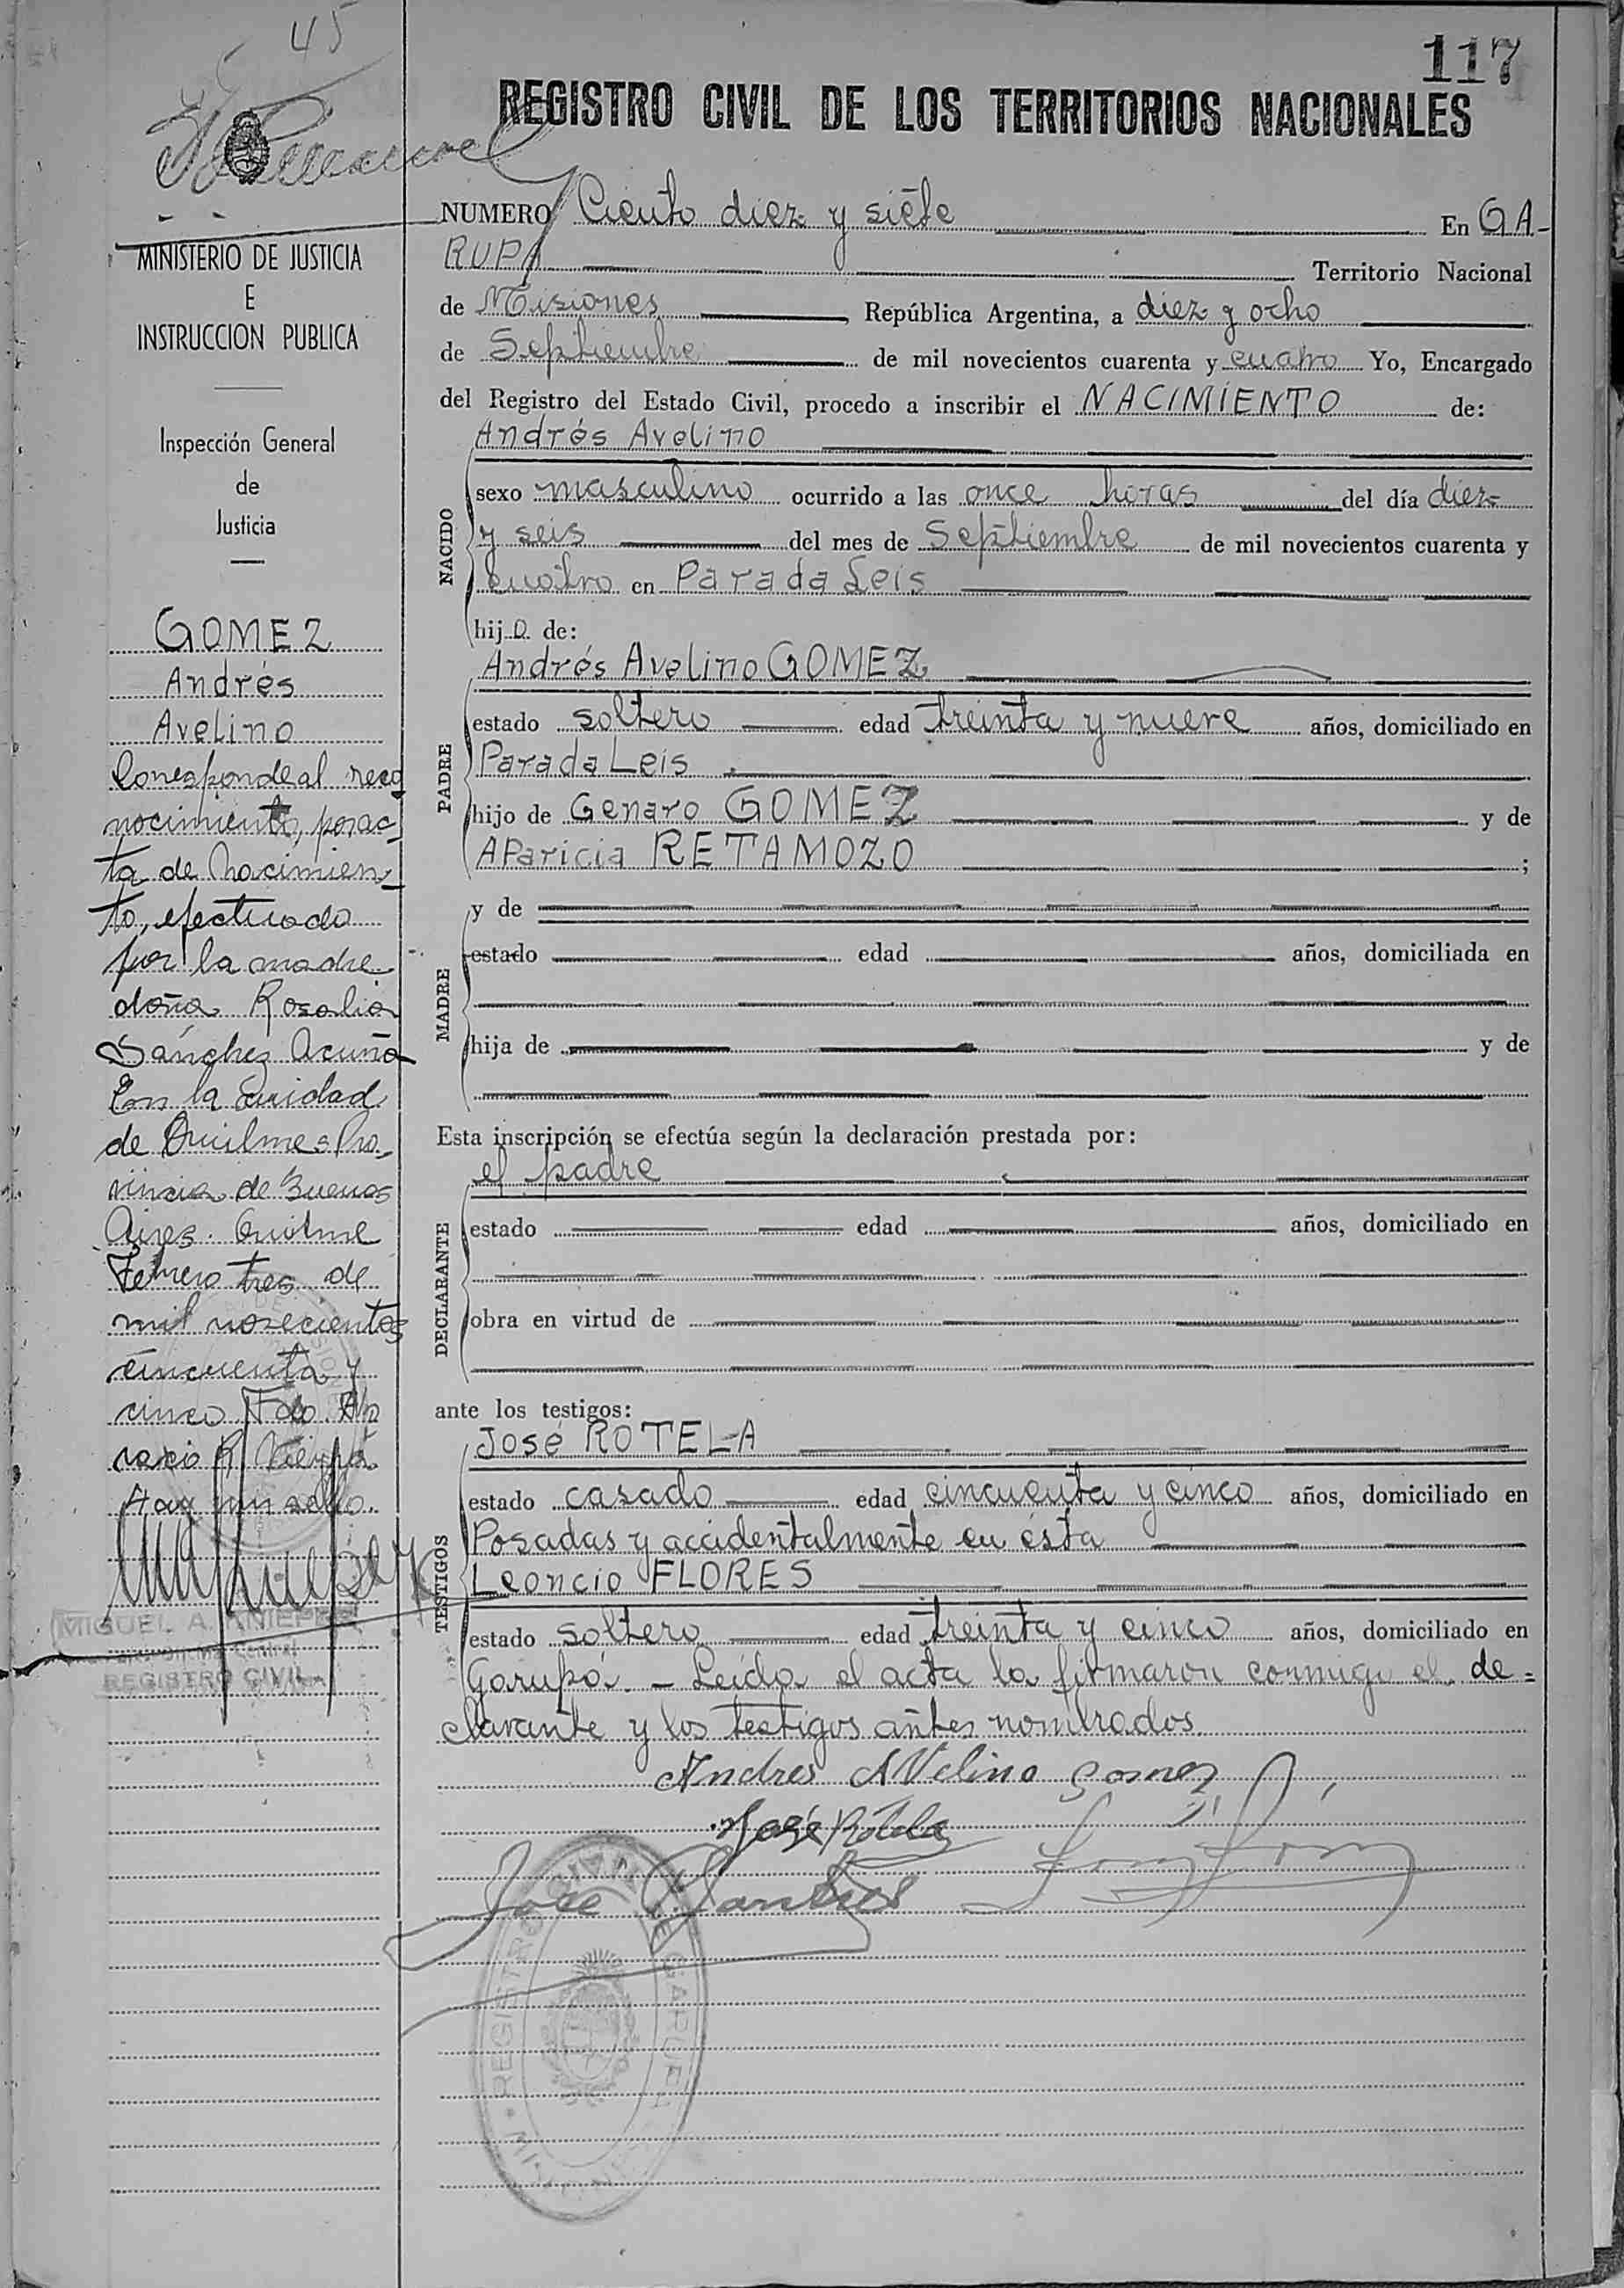 45
117
REGISTRO CIVIL DE LOS TERRITORIOS NACIONALES
MINISTERIO DE JUSTICIA
E
INSTRUCCION PUBLICA
Inspección General
de
Justicia
GOMEZ
Andrés
Avelino
Corresponde al reco
nocimiento, por ac-
ta de Nacimien-
to, efectuado
por la madre
doña Rosalia
Sánchez Acuña
En la Ciudad
de Quilmes Pro-
vincia de Buenos
Aires. Quilme
Febrero tres de
mil novecientos
cincuenta y
cinco Fdo.
Hay un sello.
MIGUEL A.
REGISTRO CIVIL
NUMERO Ciento diez y siete En GA-
RUPA Territorio Nacional
de Misiones, República Argentina, a diez y ocho
de Septiembre de mil novecientos cuarenta y cuatro Yo, Encargado
del Registro del Estado Civil, procedo a inscribir el NACIMIENTO de:
Andrés Avelino
NACIDO
sexo masculino ocurrido a las once horas del día diez
y seis del mes de Septiembre de mil novecientos cuarenta y
cuatro en Parada Leis
hijo de:
Andrés Avelino GOMEZ
PADRE
estado soltero edad treinta y nueve años, domiciliado en
Parada Leis
hijo de Genaro GOMEZ y de
Aparicia RETAMOZO ;
MADRE
y de
estado edad años, domiciliada en
hija de y de
Esta inscripción se efectúa según la declaración prestada por:
el padre
DECLARANTE
estado edad años, domiciliado en
obra en virtud de
ante los testigos:
José ROTELA
TESTIGOS
estado casado edad cincuenta y cinco años, domiciliado en
Posadas y accidentalmente en ésta
Leoncio FLORES
estado soltero edad treinta y cinco años, domiciliado en
Garupá. - Leída el acta la firmaron conmigo el de=
clarante y los testigos antes nombrados.
Andres AVelino Gomez
José Rotela
Jose